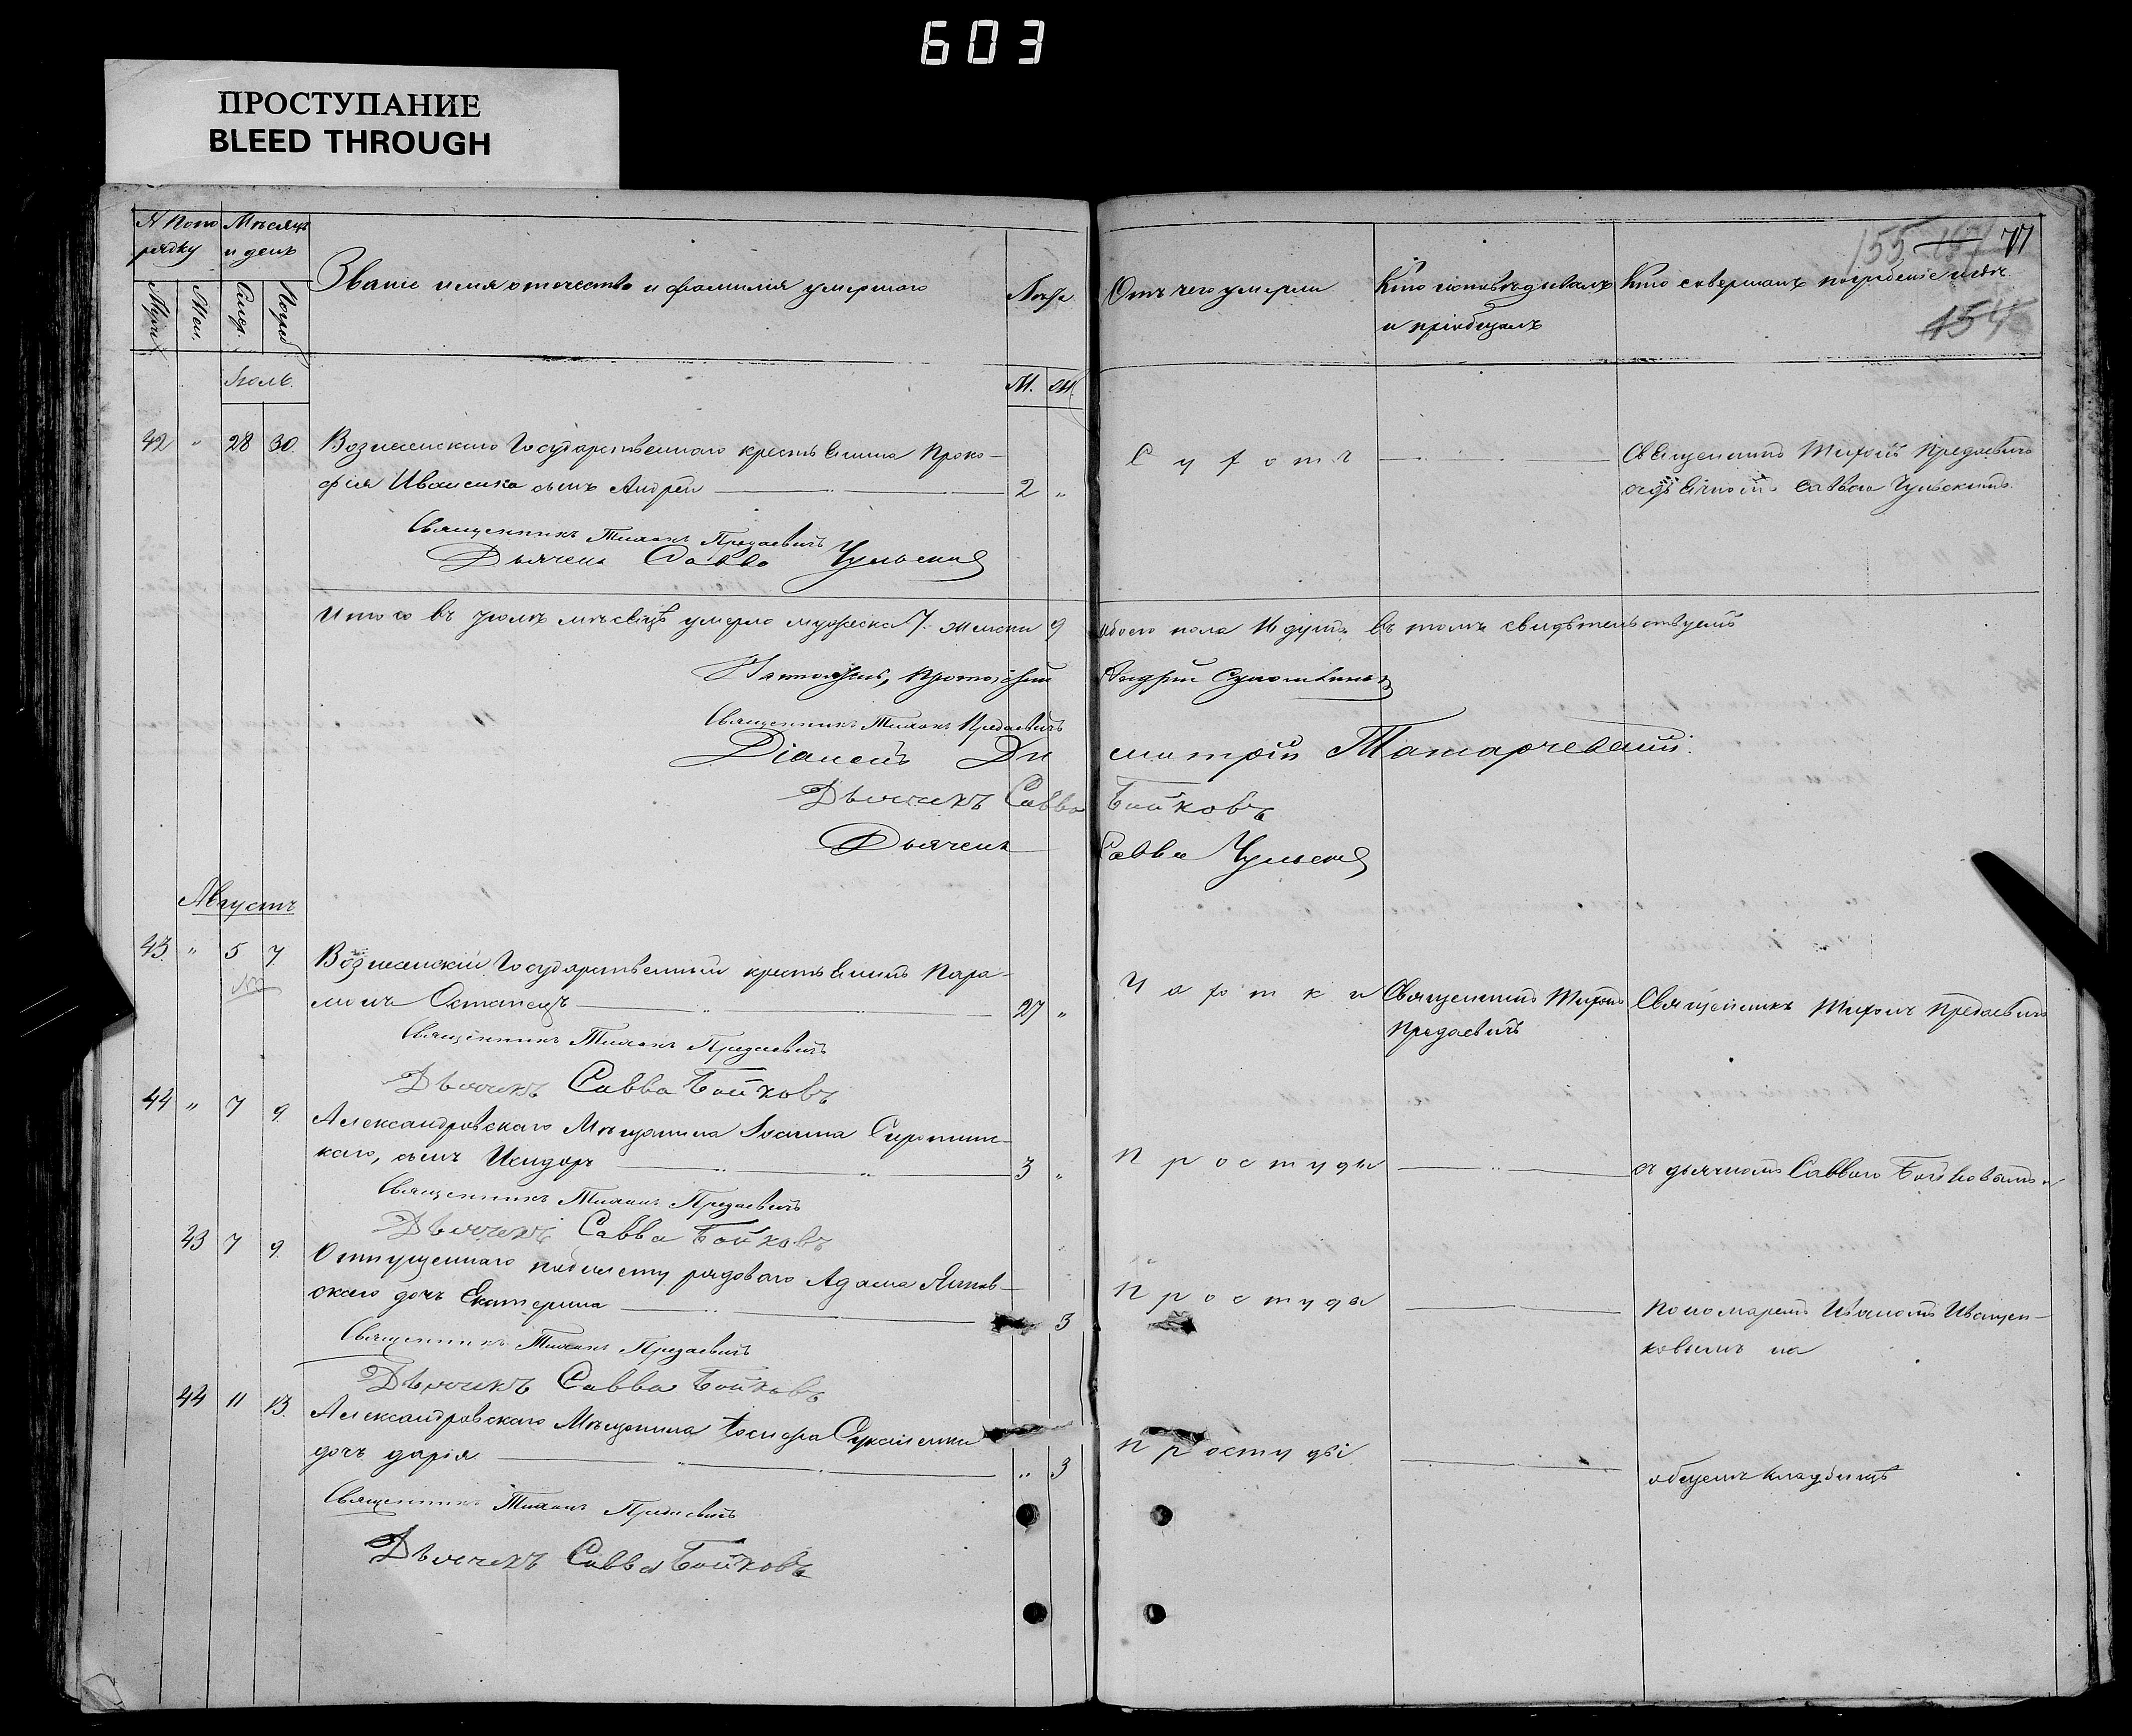 603
ПРОСТУПАНИЕ
BLEED THROUGH
155 157 77
154
№ Поло
рядку
Мѣсяцъ
и день
Званіе имя отечество и фамилія умершаго
Лѣта
Отъ чего умерли
Кто исповѣдывалъ
и пріобщалъ
Кто совершалъ погребеніе и гдѣ
Муж. Жен. Смер. Погреб.
Іюль.
М. Ж.
42 " 28 30. Вознесенскаго Государственнаго крестьянина Проко-
фія Иваненка сынъ Андрей 2 "
Сухоты
Священникъ Тихонъ Предаевичъ
съ дьячкомъ Саввою Чульскимъ.
Священникъ Тихонъ Предаевичъ
Дьячекъ Савва Чульскій
Итого въ іюлѣ мѣсяцѣ умерло мужеска 7. женска 9 обоего пола 16 душъ въ томъ свидѣтельствуемъ
Настоятель, протоіерей Андрей
Священникъ Тихонъ Предаевичъ
Діаконъ Димитрій Татарчевскій.
Дьячекъ Савва Бойковъ
Дьячекъ Савва Чульскій
Августъ
43. " 5 7. Вознесенскій Государственный крестьянинъ Пара-
монъ Остапецъ 27 "
Чахотки
Священникъ Тихонъ
Предаевичъ
Священникъ Тихонъ Предаевичъ
Священникъ Тихонъ Предаевичъ
Дьячекъ Савва Бойковъ
44 " 7 9. Александровскаго Мѣщанина Іоанна Сиротин-
скаго, сынъ Исидоръ 3 "
Простуды
съ дьячкомъ Саввою Бойковымъ и
Священникъ Тихонъ Предаевичъ
Дьячекъ Савва Бойковъ
43 7 9. Отпущеннаго по билету рядоваго Адама Янков-
скаго дочь Екатерина 3
Простуды
пономаремъ Иваномъ Иващен-
ковымъ на
Священникъ Тихонъ Предаевичъ
Дьячекъ Савва Бойковъ
44 11 13. Александровскаго Мѣщанина Іосифа
дочь Дарія " 3
простуды
общемъ кладбищѣ
Священникъ Тихонъ Предаевичъ
Дьячекъ Савва Бойковъ